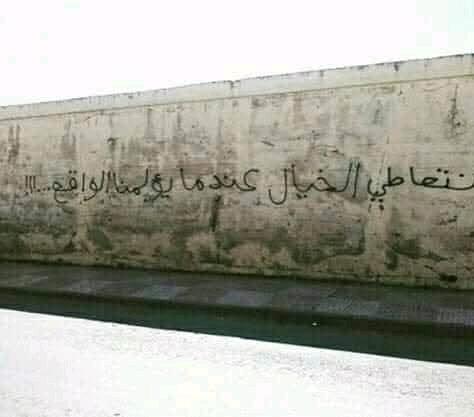 نتعاطي الخيال عندما يؤلمنا الواقع...!!!